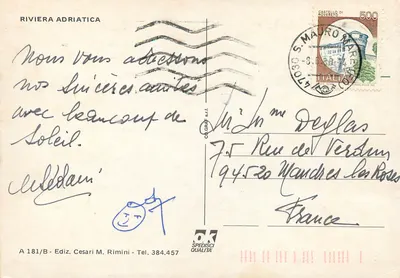 RIVIERA ADRIATICA
500
ITALIA
47030 S. MAURO MARE (FO)
Nous vous adressons
nos sincères amitiés
avec beaucoup de
soleil.
M. Mme Deglas
75 Rue de Verdun
94520 Mandres les Roses
France
A 181/B - Ediz. Cesari M. Rimini - Tel. 384.457